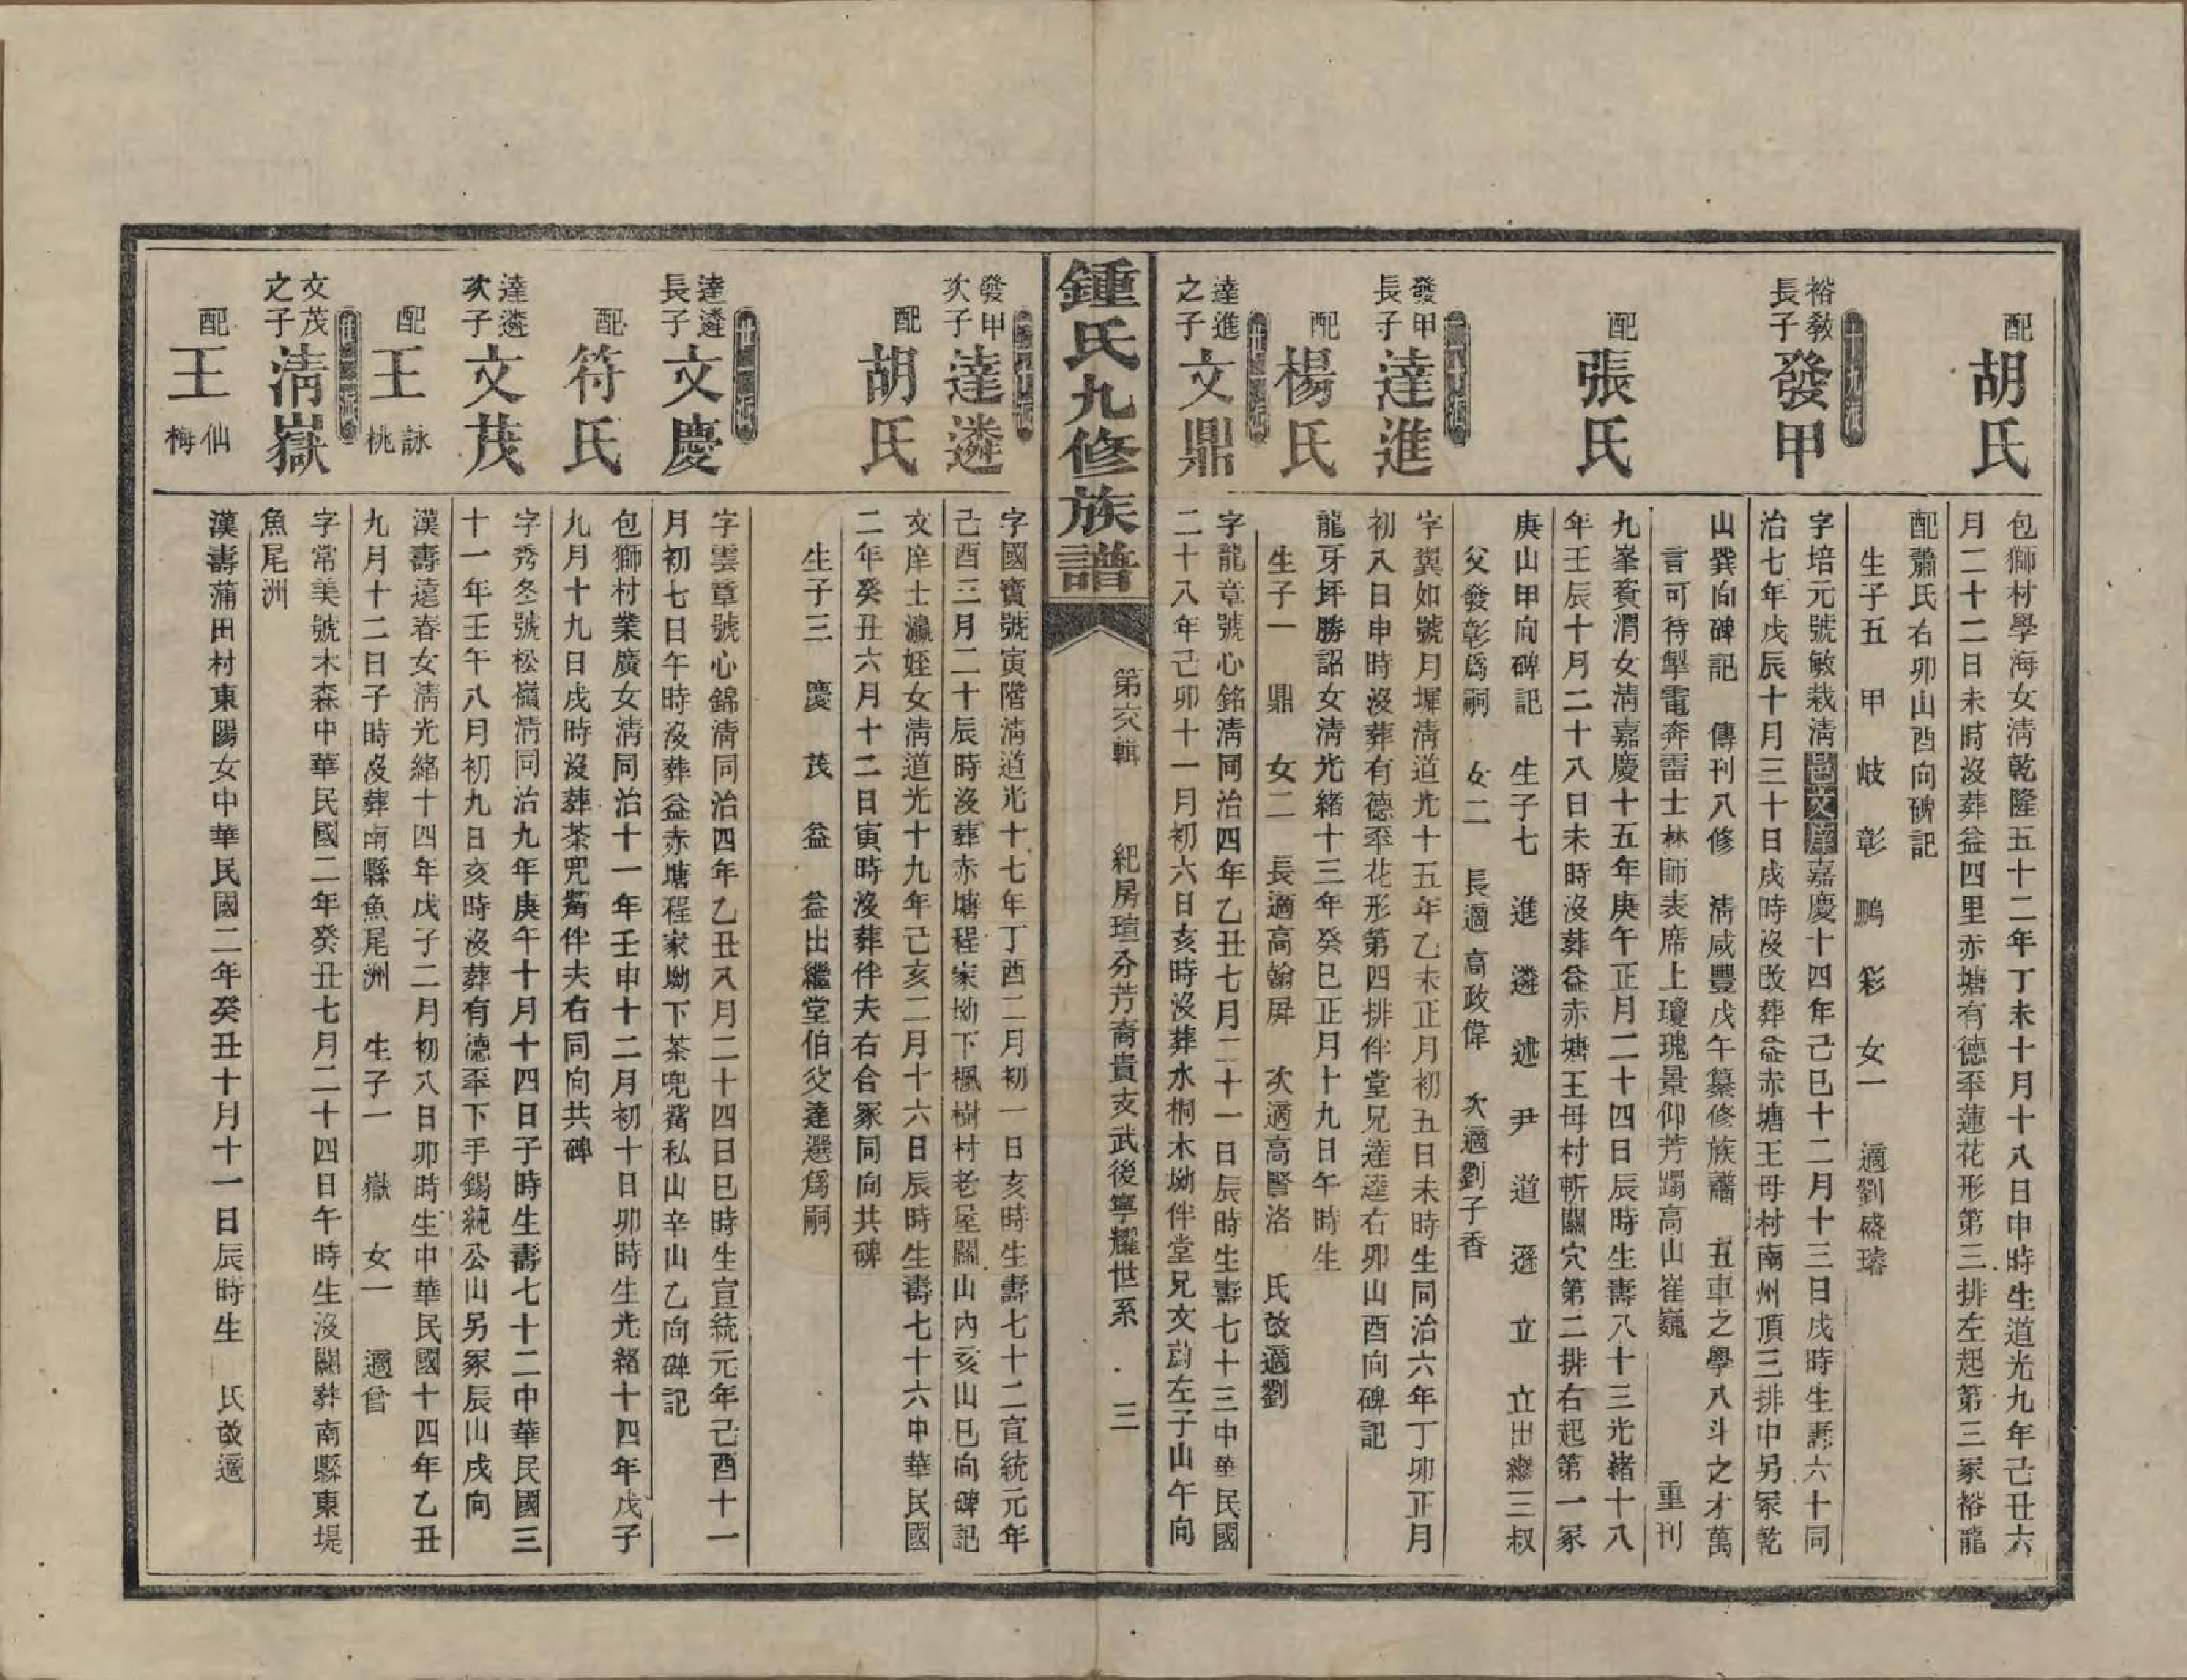 配
胡氏
包獅村學海女淸乾隆五十二年丁未十月十八日申時生道光九年己丑六
月二十二日未時沒葬益四里赤塘有德丕蓮花形第三排左起第三冢裕龍
配蕭氏右卯山酉向碑記
生子五 甲 岐 彰 鵬 彩 女一 適劉盛璿
十九派
裕敎
長子
發甲
字培元號敏栽淸邑文庠嘉慶十四年己巳十二月十三日戌時生壽六十同
治七年戊辰十月三十日戌時沒改葬益赤塘王母村南州頂三排中另冢乾
山巽向碑記 傳刊八修 淸咸豐戊午纂修族譜 五車之學八斗之才萬
言可待掣電奔雷士林師表席上瓊瑰景仰芳躅高山崔巍 重刊
配
張氏
九峯賓渭女淸嘉慶十五年庚午正月二十四日辰時生壽八十三光緖十八
年壬辰十月二十八日未時沒葬益赤塘王母村斬關穴第二排右起第一冢
庚山甲向碑記 生子七 進 遴 述 尹 道 遜 立 立出繼三叔
父發彰爲嗣 女二 長適高政偉 次適劉子香
二十派
發甲
長子
達進
字翼如號月墀淸道光十五年乙未正月初五日未時生同治六年丁卯正月
初八日申時沒葬有德丕花形第四排伴堂兄達逵右卯山酉向碑記
配
楊氏
龍牙坪勝詔女淸光緖十三年癸巳正月十九日午時生
生子一 鼎 女二 長適高翰屏 次適高賢洛 氏改適劉
廿一派
達進
之子
文鼎
字龍章號心銘淸同治四年乙丑七月二十一日辰時生壽七十三中華民國
二十八年己卯十一月初六日亥時沒葬水桐木坳伴堂兄文蔚左子山午向
鍾氏九修族譜
第六輯 紀房瑄分芳裔貴支武後寧耀世系 三
二十派
發甲
次子
達遴
字國賓號寅階淸道光十七年丁酉二月初一日亥時生壽七十二宣統元年
己酉三月二十辰時沒葬赤塘程家坳下楓樹村老屋關山內亥山巳向碑記
配
胡氏
文庠士瀛姪女淸道光十九年己亥二月十六日辰時生壽七十六中華民國
二年癸丑六月十二日寅時沒葬伴夫右合冢同向共碑
生子三 慶 茂 益 益出繼堂伯父達選爲嗣
廿一派
達遴
長子
文慶
字雲章號心錦淸同治四年乙丑八月二十四日巳時生宣統元年己酉十一
月初七日午時沒葬益赤塘程家坳下茶兜觜私山辛山乙向碑記
配
符氏
包獅村業廣女淸同治十一年壬申十二月初十日卯時生光緖十四年戊子
九月十九日戌時沒葬茶兜觜伴夫右同向共碑
達遴
次子
文茂
字秀冬號松嶺淸同治九年庚午十月十四日子時生壽七十二中華民國三
十一年壬午八月初九日亥時沒葬有德丕下手錫純公山另冢辰山戌向
配
王詠桃
漢壽遠春女淸光緖十四年戊子二月初八日卯時生中華民國十四年乙丑
九月十二日子時沒葬南縣魚尾洲 生子一 嶽 女一 適曾
廿二派
文茂
之子
淸嶽
字常美號木森中華民國二年癸丑七月二十四日午時生沒關葬南縣東堤
魚尾洲
配
王仙梅
漢壽蒲田村東陽女中華民國二年癸丑十月十一日辰時生 氏改適